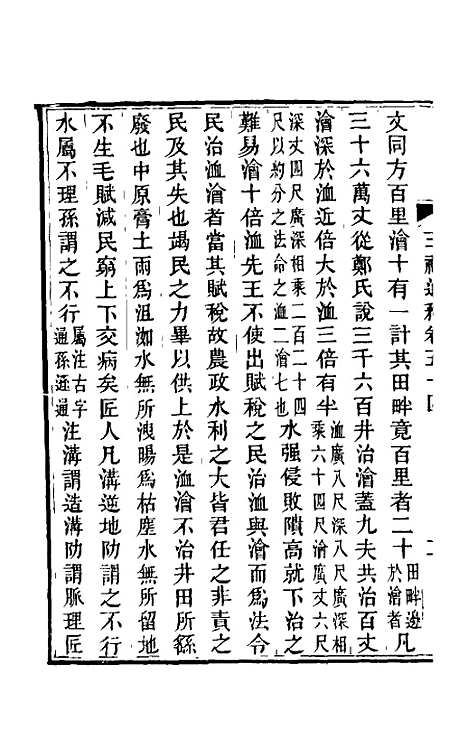 文同方百里澮十有一計其田畔竟百里者二十田畔邊於澮者凡
三十六萬丈從鄭氏說三千六百井治澮蓋九夫共治百丈
澮深於洫近倍大於洫三倍有半洫廣八尺深八尺廣深相乘六十四尺澮廣丈六尺
深丈四尺廣深相乘二百二十四尺以約分之法命之洫二澮七也水强侵敗隤高就下治之
難易澮十倍洫先王不使出賦稅之民治洫與澮而爲法令
民治洫澮者當其賦稅故農政水利之大皆君任之非責之
民及其失也竭民之力畢以供上於是洫澮不治井田所繇
廢也中原膏土雨爲沮洳水無所洩暘爲枯塵水無所留地
不生毛賦減民窮上下交病矣匠人凡溝逆地阞謂之不行
水屬不理孫謂之不行屬注古字通孫遜通注溝謂造溝阞謂脈理匠
三禮通釋卷五十四